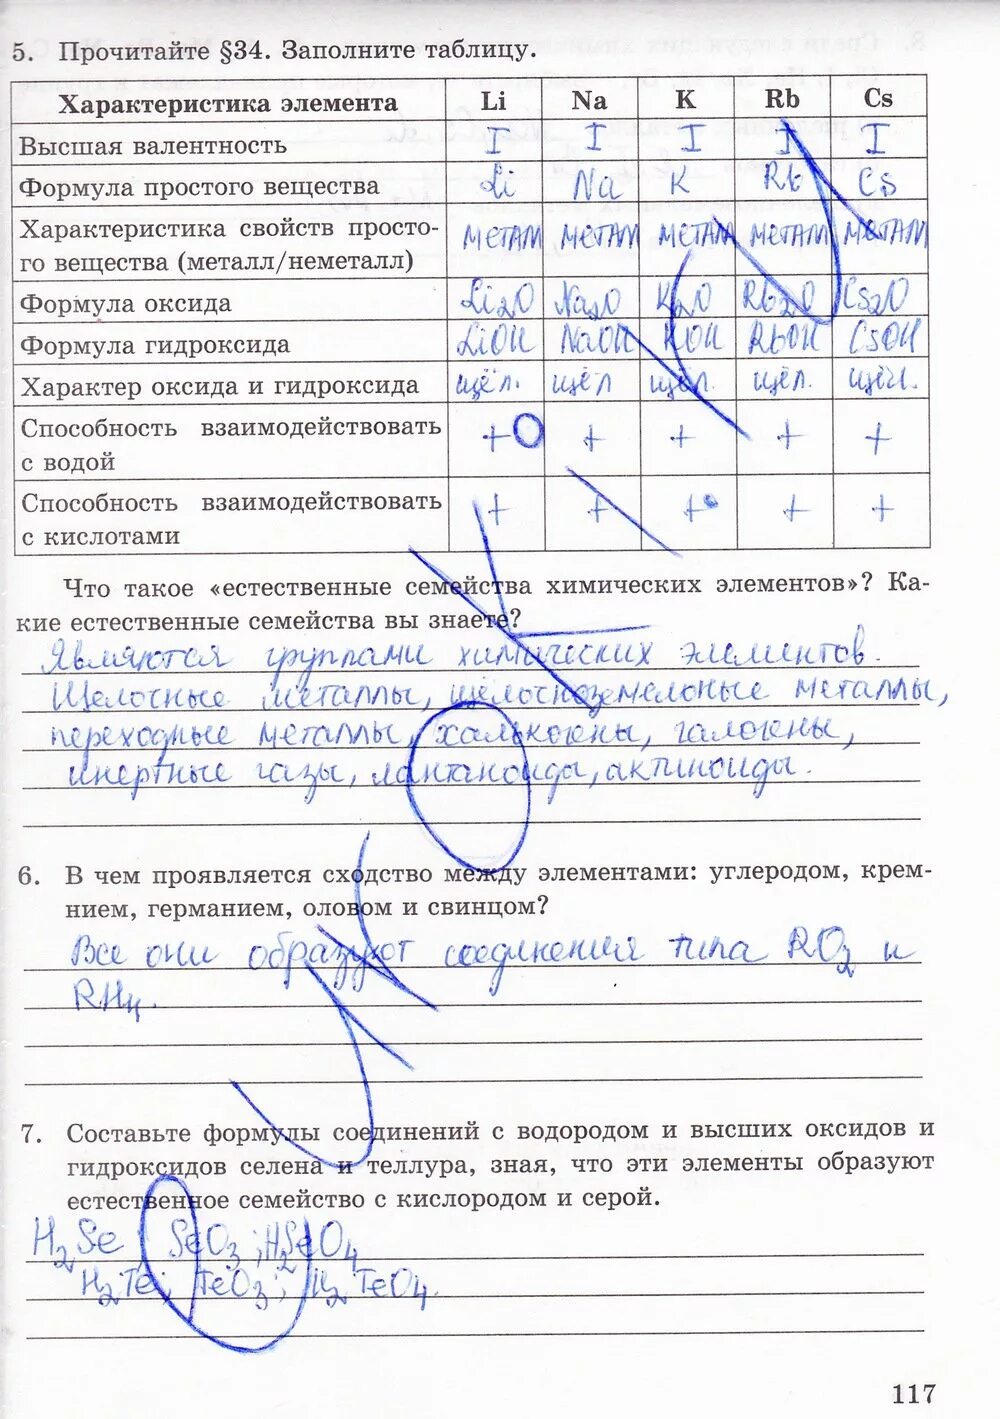 5. Прочитайте §34. Заполните таблицу.
Характеристика элемента Li Na K Rb Cs
Высшая валентность I I I I I
Формула простого вещества Li Na K Rb Cs
Характеристика свойств просто-
го вещества (металл/неметалл) МЕТАЛ МЕТАЛ МЕТАЛЛ МЕТАЛЛ МЕТАЛЛ
Формула оксида Li2O Na2O K2O Rb2O Cs2O
Формула гидроксида LiOH NaOH KOH RbOH CsOH
Характер оксида и гидроксида щёл. щёл щёл. щёл. щёл.
Способность взаимодействовать
с водой + + + + +
Способность взаимодействовать
с кислотами + + + + +
Что такое «естественные семейства химических элементов»? Ка-
кие естественные семейства вы знаете?
Являются группами химических элементов.
Щелочные металлы, щёлочноземельные металлы,
переходные металлы, халькогены, галогены,
инертные газы, лантаноиды, актиноиды.
6. В чем проявляется сходство между элементами: углеродом, крем-
нием, германием, оловом и свинцом?
Все они образуют соединения типа RO2 и
RH4.
7. Составьте формулы соединений с водородом и высших оксидов и
гидроксидов селена и теллура, зная, что эти элементы образуют
естественное семейство с кислородом и серой.
H2Se; SeO3; H2SeO4
H2Te; TeO3; H2TeO4.
117